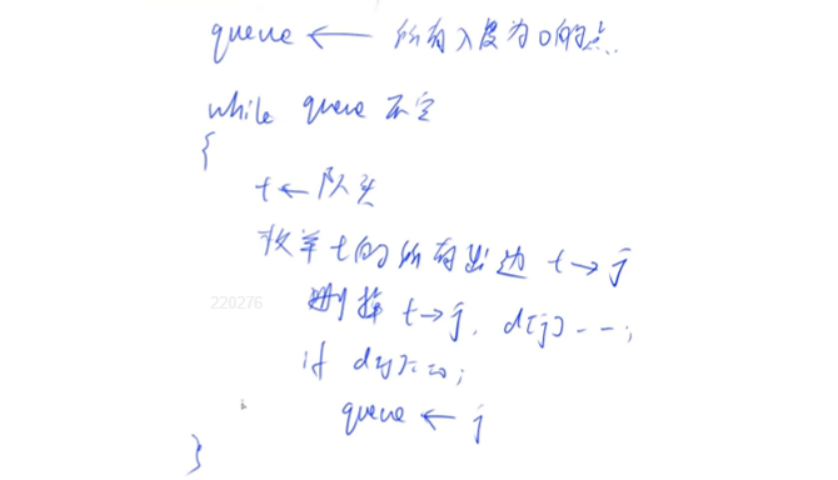 queue ← 所有入度为0的点.
while queue 不空
{
t ← 队头
枚举 t 的所有出边 t → j
删掉 t → j, d[j]--;
220276
if d[j] == 0;
queue ← j
}